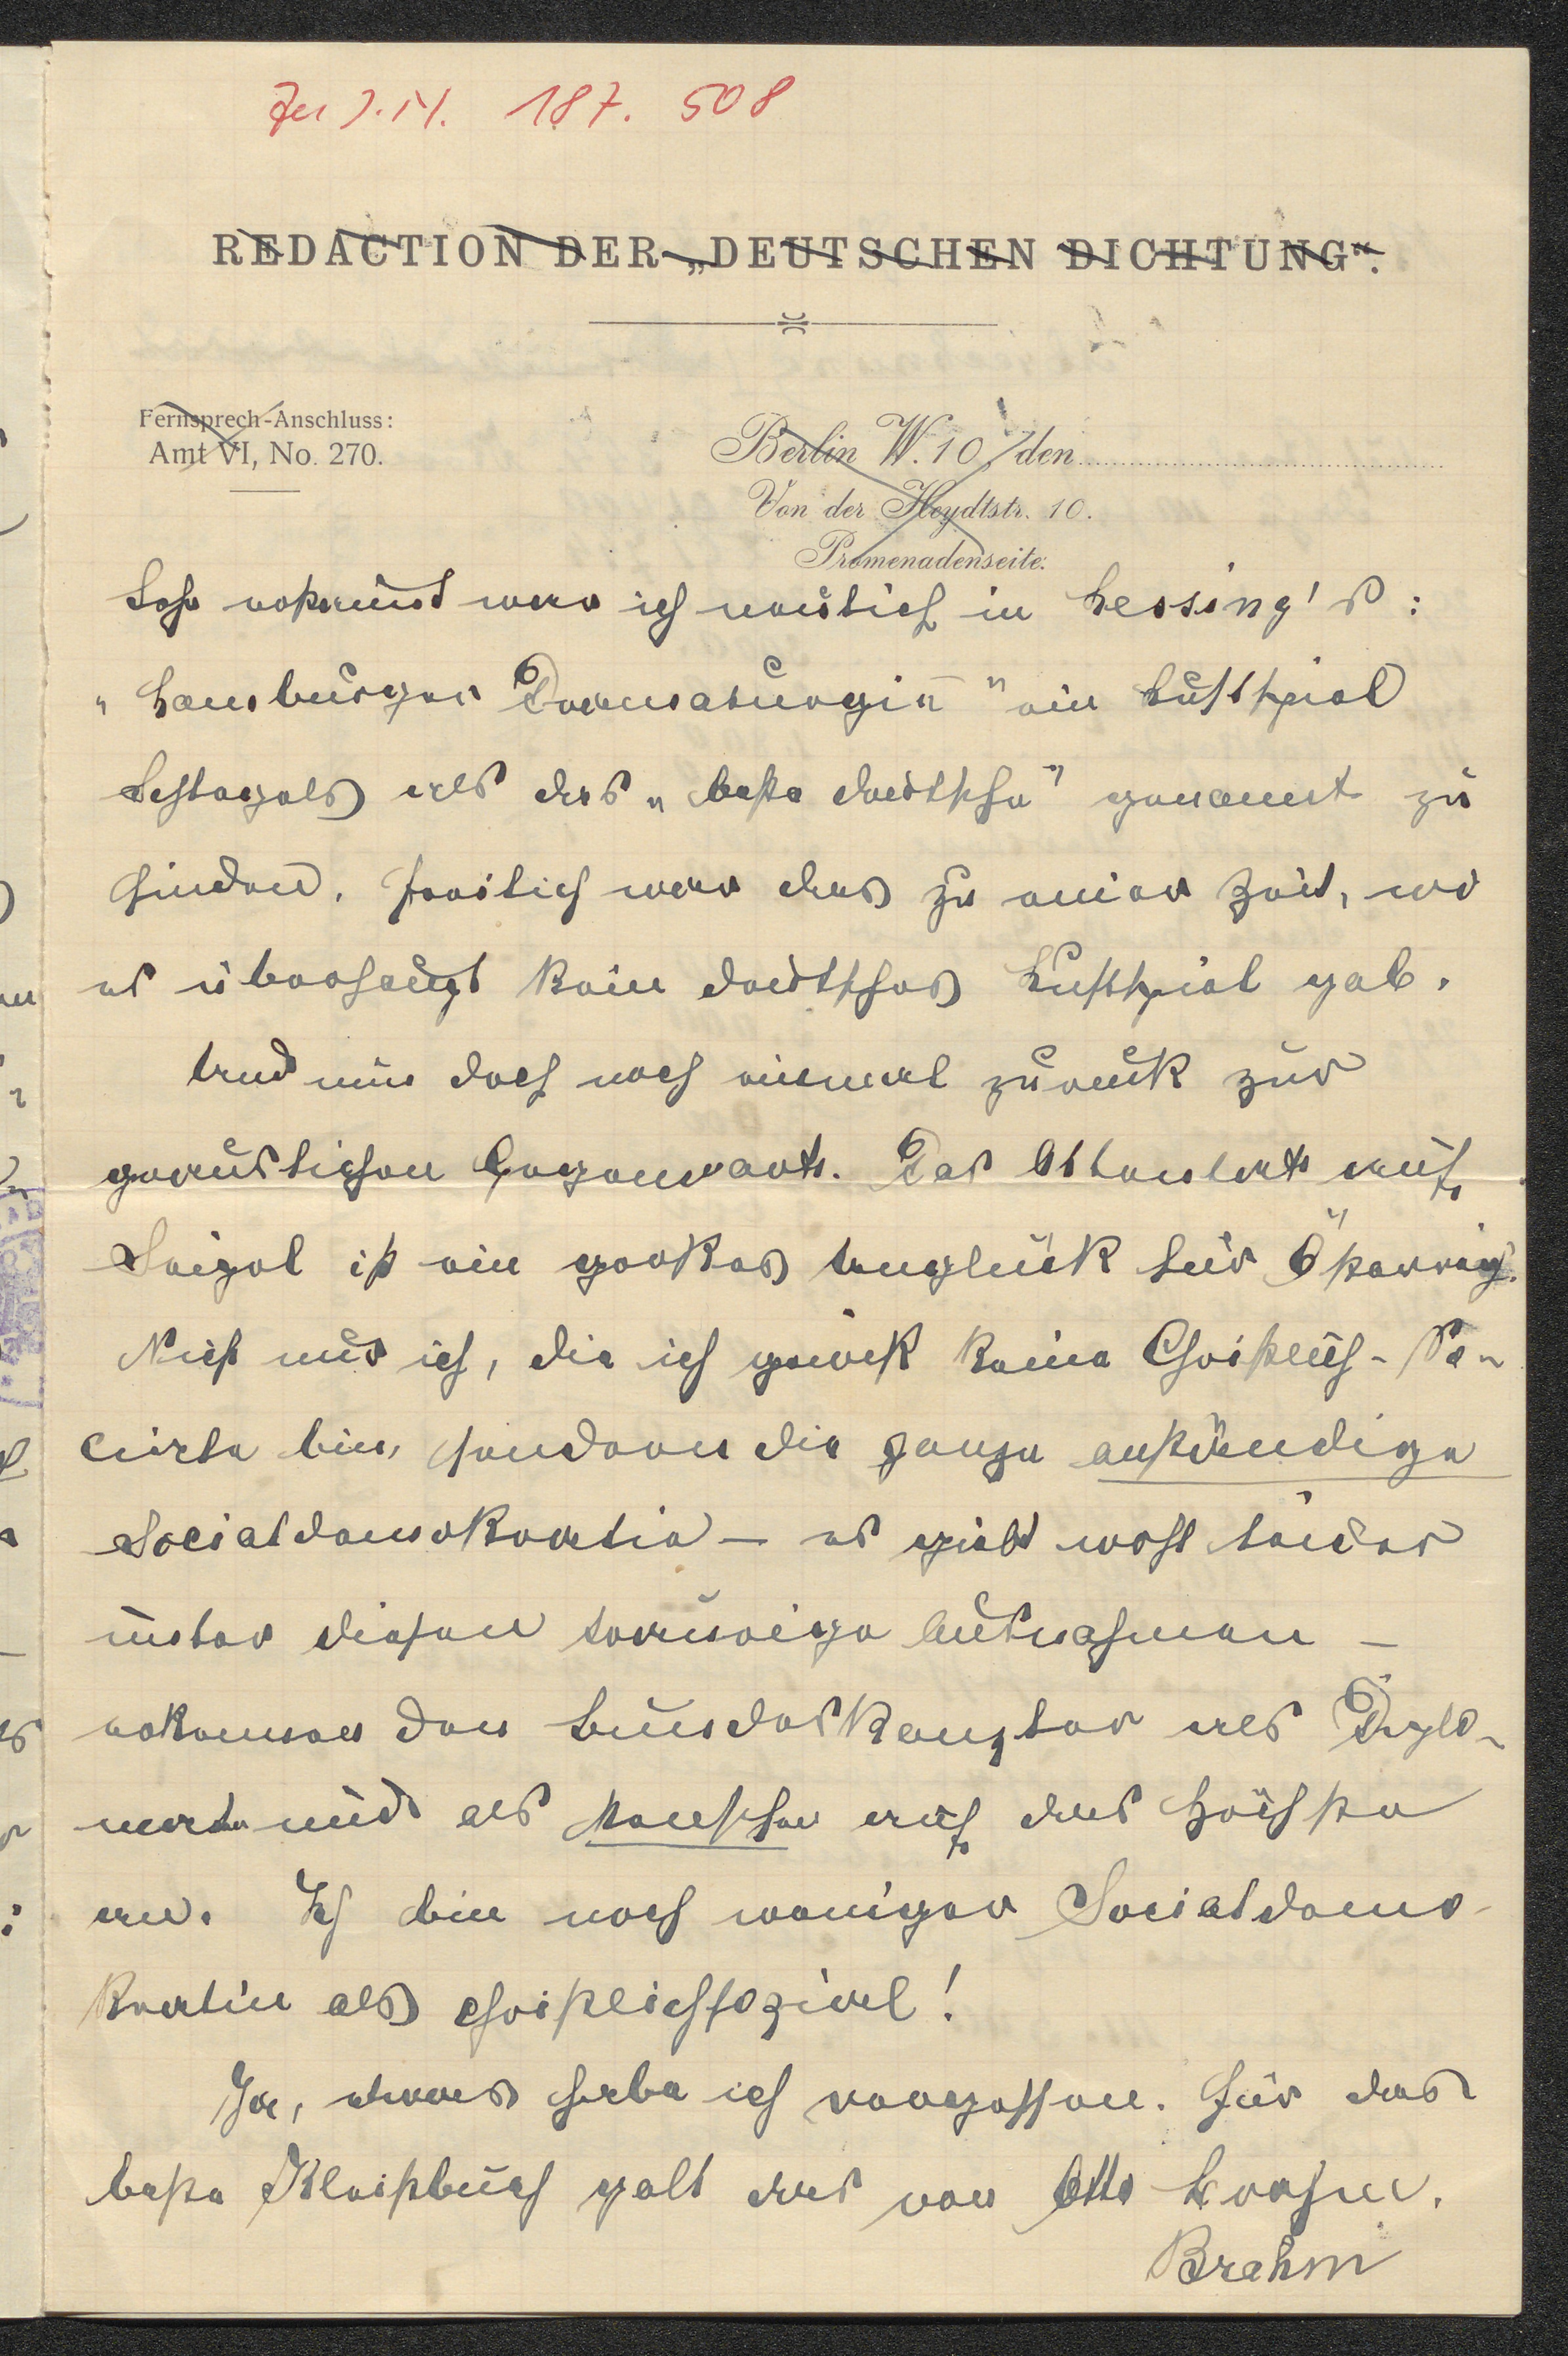 Zu I.N. 187.508
REDACTION DER „DEUTSCHEN DICHTUNG“.
Fernsprech-Anschluss:
Amt VI, No. 270.
Berlin W. 10, den
Von der Heydtstr. 10.
Promenadenseite.
Sehr erstaunt war ich neulich in Lessing's:
„Hamburger Dramaturgie“ ein Lustspiel
Schlegels als das „beste deutsche“ genannt zu
finden. Freilich war das zu einer Zeit, wo
es überhaupt kein deutsches Lustspiel gab.
Und nun doch noch einmal zurück zur
greulichen Gegenwart. Das Attentat auf
Seipel ist ein großes Unglück für Österreich.
Nicht nur ich, die ich gewiß keine Christlich-So-
cinde bin, sondern die ganze anständige
Socialdemokratie – es giebt wohl leider
unter diesen traurige Ausnahmen –
erkennen den Bundeskanzler als Diplo-
maten und als Menschen auf das Höchste
an. Ich bin noch weniger Socialdemo-
kratin als christlichsozial!
Ja, etwas habe ich vergessen. Für das
beste Kleistbuch galt das von Otto Brahm.
Brahm